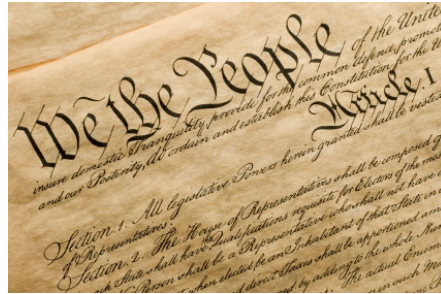 We the People of the United
insure domestic Tranquility, provide for the common defence, promote
and our Posterity, do ordain and establish this Constitution for the U
Article. I
Section. 1. All legislative Powers herein granted shall be vested
of Representatives.
Section. 2. The House of Representatives shall be composed of
each State shall have Qualifications requisite for Electors of the most
No Person shall be a Representative who shall not have
not when elected, be an Inhabitant of that State in
and direct Taxes shall be apportioned am
by adding to the whole Num
The actual Enumer